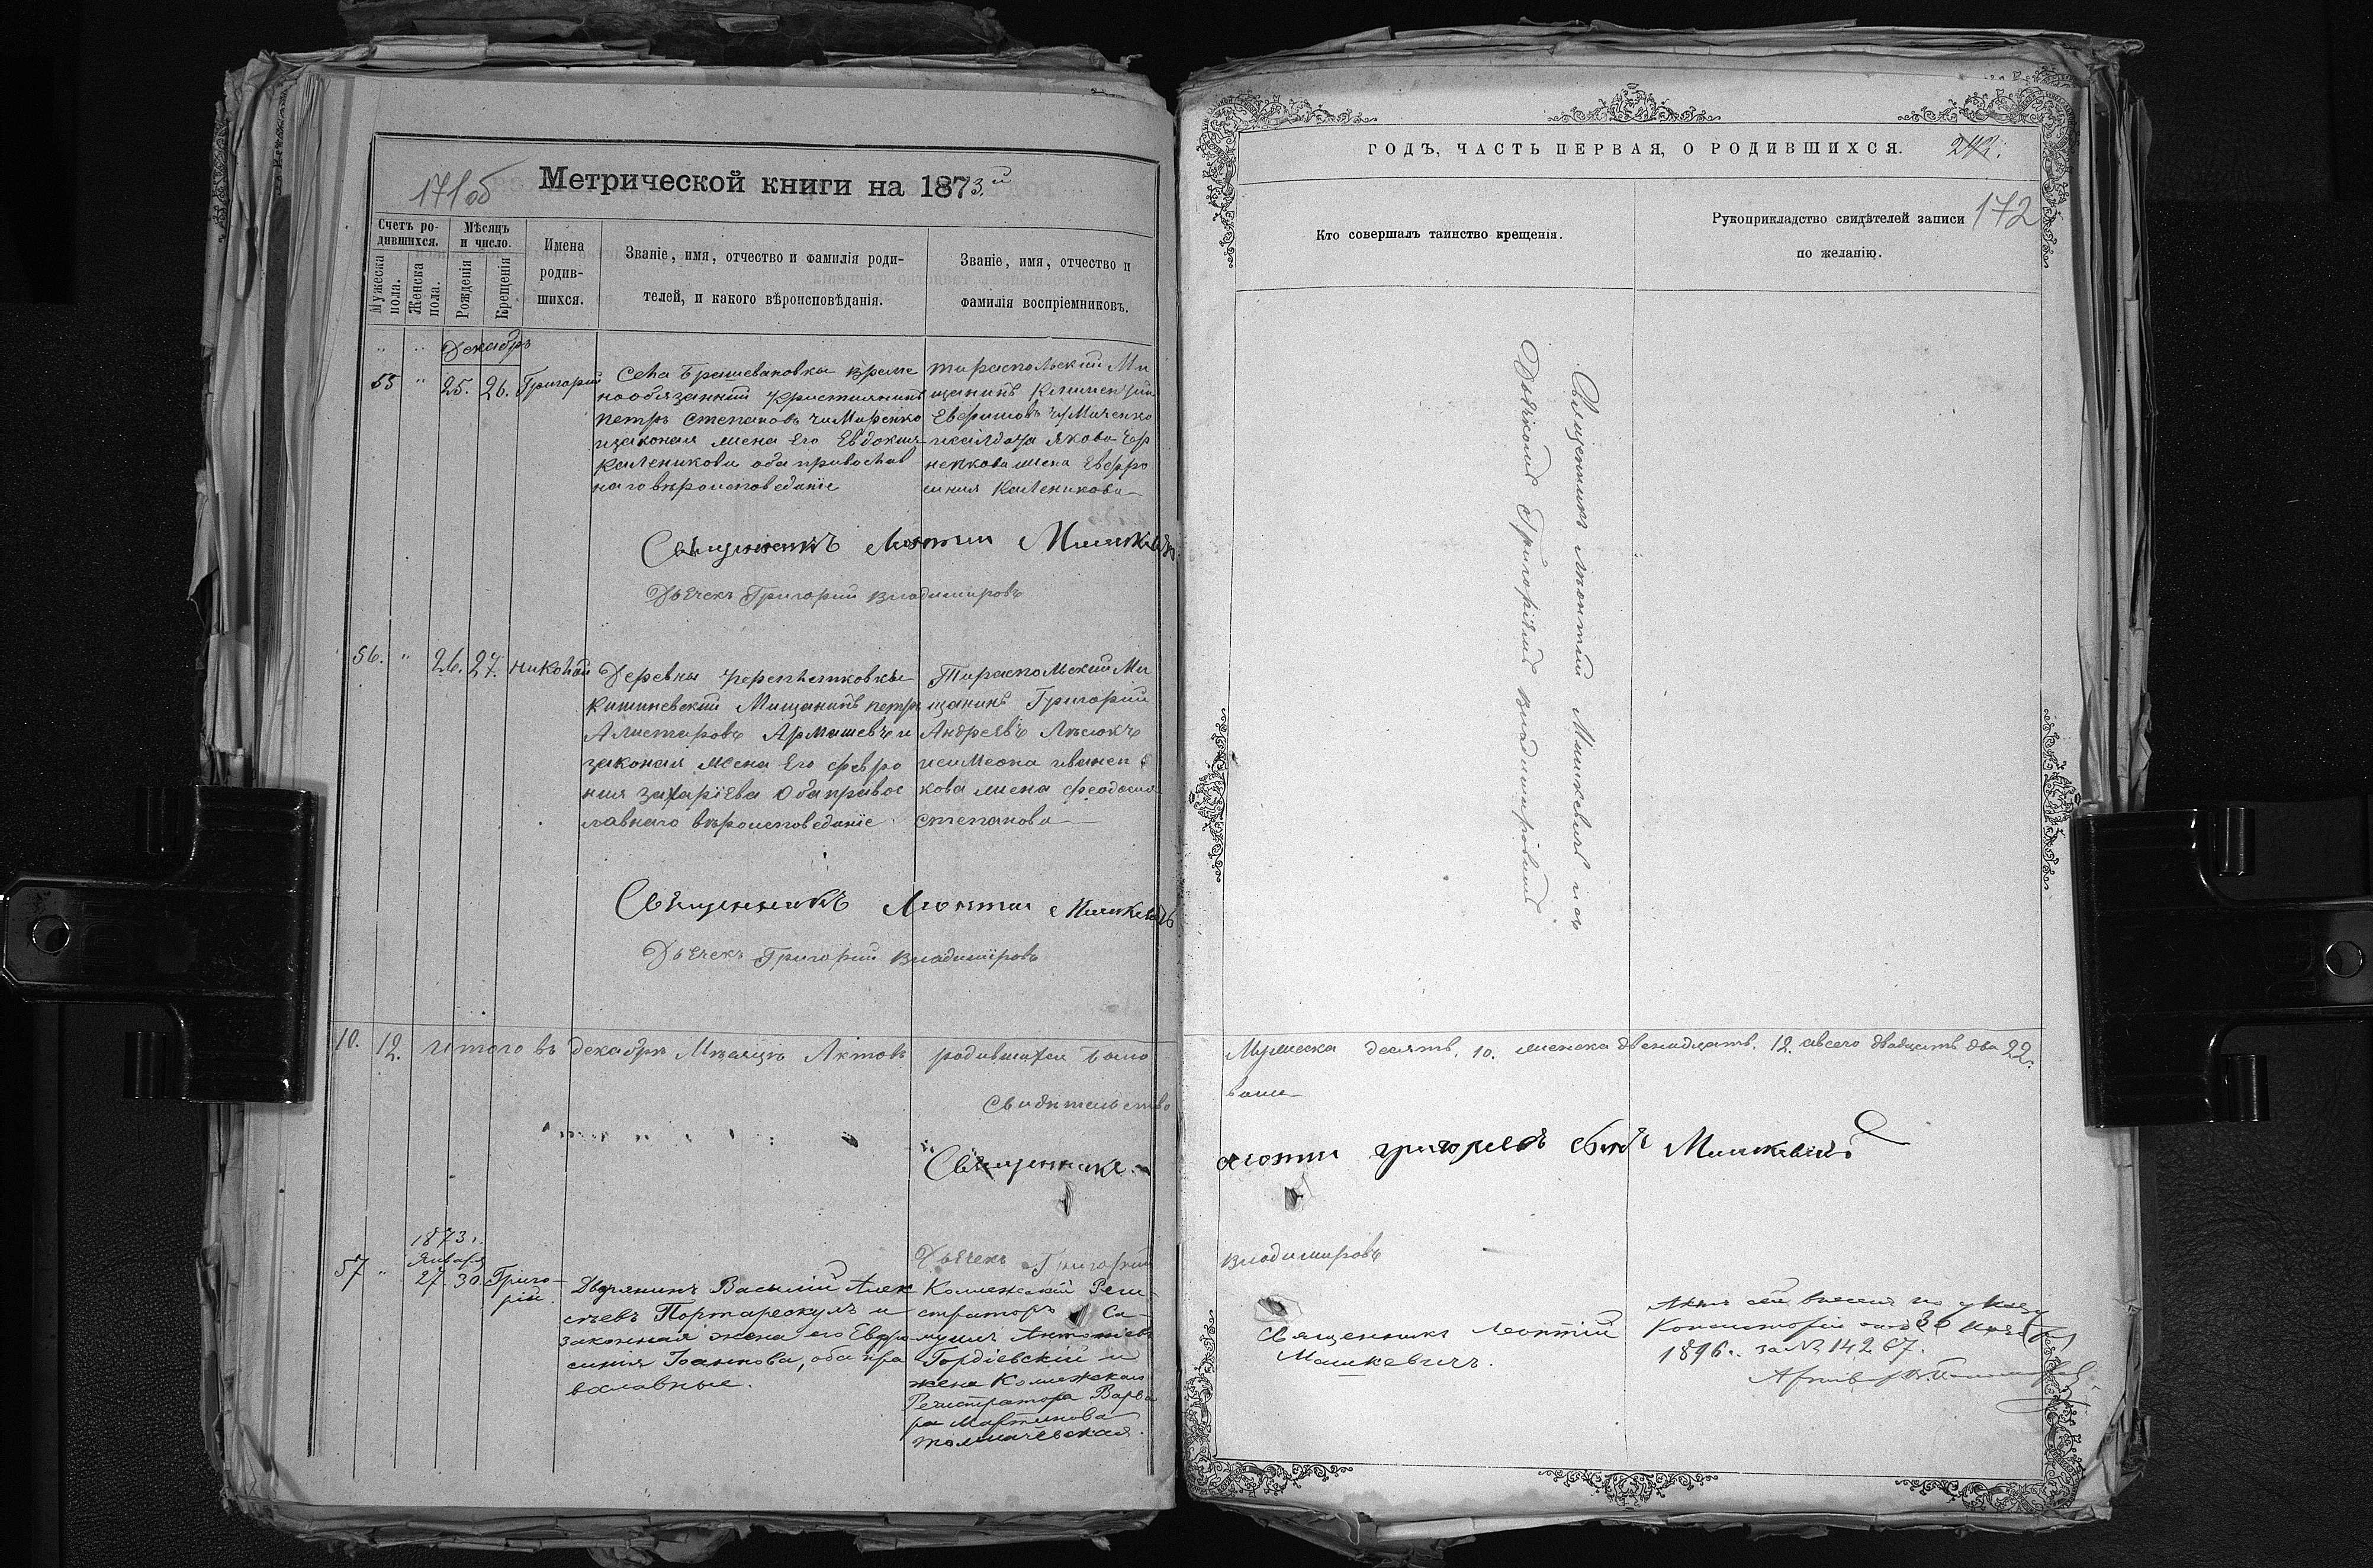 171об
Метрической книги на 1873й
Счетъ ро-
дившихся.
Мѣсяцъ
и число.
Мужеска
пола.
Женска
пола.
Рожденія
Крещенія
Имена
родив-
шихся.
Званіе, имя, отчество и фамилія роди-
телей, и какого вѣроисповѣданія.
Званіе, имя, отчество и
фамилія воспріемниковъ.
Декабрь
55 " 25. 26. Григорій
села
нообязанный
петръ степановъ чимиренко
изаконая жена его Евдокия
каленикова оба православ
наго вѣроисповедание
тираспольский ми
щанинъ
жена Евфро
синия каленикова
Священникъ Леонтии Мишкевичъ
Дьячекъ Григорий владимировъ
56. " 26. 27. николай
Деревны
кишиневский мищанинъ петръ
Армашевъ и
законая жена его февро
ния захариева оба правос
лавнаго вѣроисповедание
Тираспольский ми
щанинъ Григорий
Андреевъ
кова жена феодосия
степанова
Священникъ Леонтии Мишкевичъ
Дьячекъ Григорий владимировъ
10. 12. итого въ декабрѣ мѣсяцѣ Актовъ родившихся
Свидѣтельство
Священника
Дьячекъ Григорий
1873г.
Января
57 " 27 30. Григо-
рій
Дворянинъ Василій Алек
сѣевъ Портарескулъ и
законная жена его Евфро
синія Іоаннова, оба пра
вославные.
Коллежскій Реги-
страторъ Са-
муилъ Антоніевъ
Гордіевскій и
жена Коллежскаго
Регистратора Варва
ра Мартинова
ГОДЪ, ЧАСТЬ ПЕРВАЯ, О РОДИВШИХСЯ.
172
Кто совершалъ таинство крещенія.
Рукоприкладство свидѣтелей записи
по желанію.
Священникъ Леонтий Мишкевичъ и съ
Дьячкомъ Григоріемъ владимировымъ
Мужеска десять. 10. женска двенадцать. 12. авсего двадцать два 22.
Леонтии григорьевъ сынъ Мишкевичъ
владимировъ
Священникъ Леонтій
Машкевичъ.
Актъ сей внесенъ по указу
Консисторіи
1896г. за № 14267.